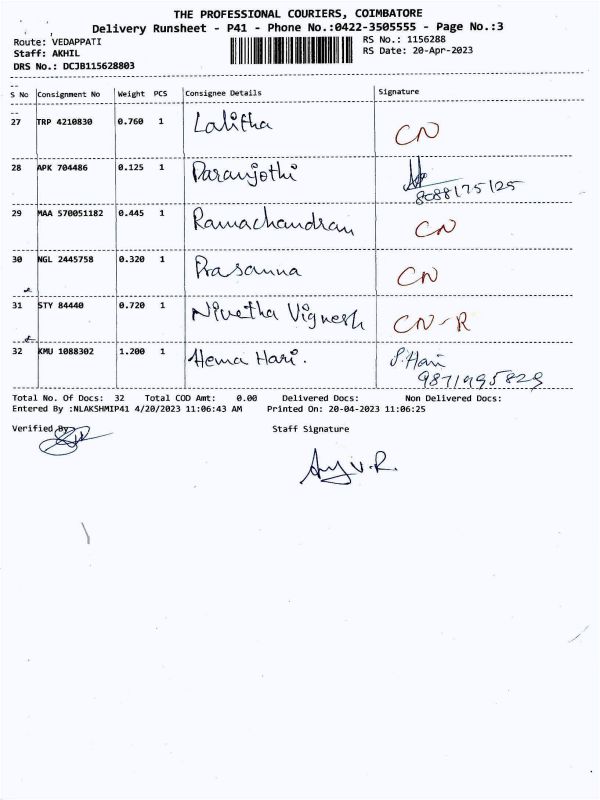 THE PROFESSIONAL COURIERS, COIMBATORE
Delivery Runsheet - P41 - Phone No.:0422-3505555 - Page No.:3
Route: VEDAPPATI RS No.: 1156288
Staff: AKHIL RS Date: 20-Apr-2023
DRS No.: DCJB115628803
S No Consignment No Weight PCS Consignee Details Signature
27 TRP 4210830 0.760 1 Lalitha CN
28 APK 704486 0.125 1 Paranjothi
8088175125
29 MAA 570051182 0.445 1 Ramachandran CN
30 NGL 2445758 0.320 1 Prasanna CN
31 STY 84440 0.720 1 Nivetha Vignesh CN-R
32 KMU 1088302 1.200 1 Hema Hari. S.Hari
9871995829
Total No. Of Docs: 32 Total COD Amt: 0.00 Delivered Docs: Non Delivered Docs:
Entered By :NLAKSHMIP41 4/20/2023 11:06:43 AM Printed On: 20-04-2023 11:06:25
Verified By Staff Signature
V.R.